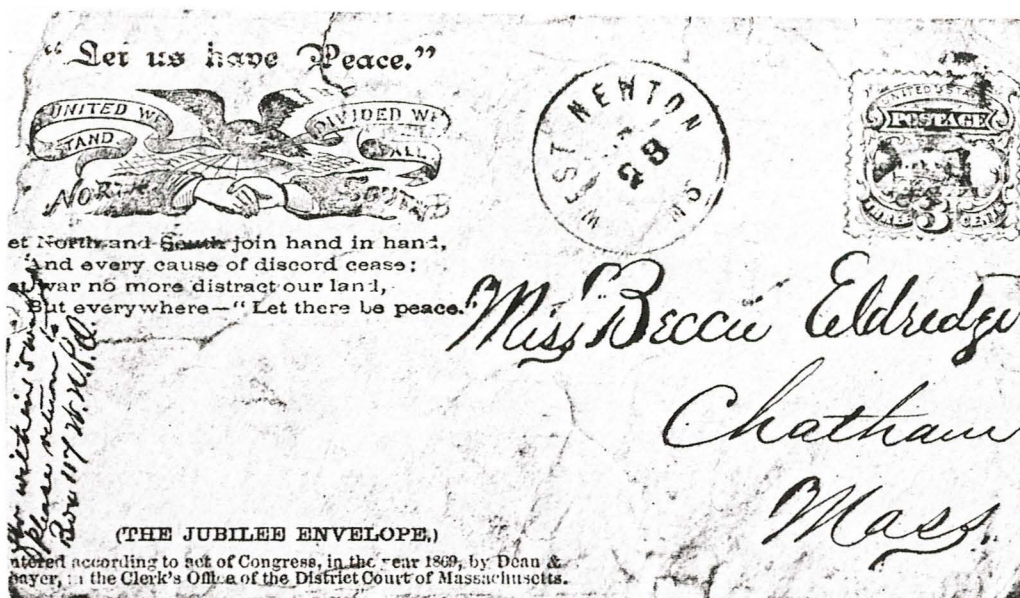 "Let us have Peace."
UNITED WE
STAND
DIVIDED WE
FALL
NORTH
SOUTH
et North and South join hand in hand,
nd every cause of discord cease;
et war no more distract our land,
But everywhere—"Let there be peace."
WEST NEWTON
8
13
UNITED STATES
POSTAGE
THREE 3 CENTS
Miss Beccie Eldredge
Chatham
Mass.
please return to
Box 117 W. N. P.O.
(THE JUBILEE ENVELOPE.)
ntered according to act of Congress, in the year 1869, by Dean &
bayer, in the Clerk's Office of the District Court of Massachusetts.